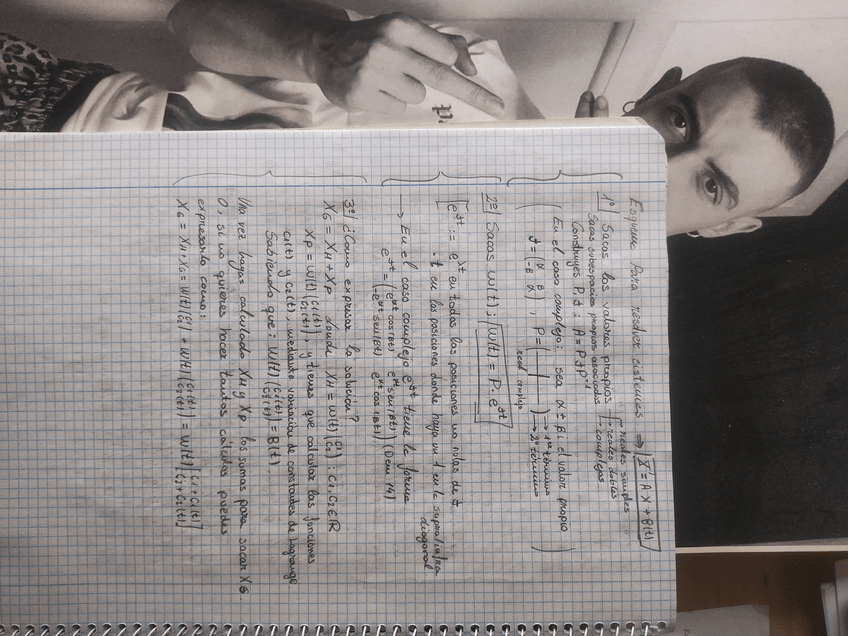 Esquema Para resolver sistemas ⇒ X' = AX + B(t)
1º| Sacas los valores propios → reales simples
→ reales dobles
→ complejos
Sacas subespacios propios asociados
Construyes P, J : A = PJP⁻¹
En el caso complejo: sea α ± βi el valor propio
J = (α β / -β α) , P = ( | ) → 1er término
→ 2º término
real complejo
2º| Sacas W(t) ; W(t) = P · e^Jt
e^Jt := e^λt en todas las posiciones no nulas de J
· t en las posiciones donde haya un 1 en la supra/infra
diagonal
→ En el caso complejo e^Jt tiene la forma
e^Jt = (e^αt cos(βt) e^αt sen(βt) / -e^αt sen(βt) e^αt cos(βt)) (Dem 14)
3º| ¿Cómo expresar la solución?
X_G = X_H + X_P donde X_H = W(t)(C₁ / C₂) : C₁, C₂ ∈ ℝ
X_P = W(t)(C₁(t) / C₂(t)), y tienes que calcular las funciones
C₁(t) y C₂(t), mediante variación de constantes de Lagrange
Sabiendo que: W(t)(C₁'(t) / C₂'(t)) = B(t)
Una vez hayas calculado X_H y X_P los sumas para sacar X_G.
O, si no quieres hacer tantos cálculos puedes
expresarlo como:
X_G = X_H + X_G = W(t)(C₁ / C₂) + W(t)(C₁(t) / C₂(t)) = W(t)[C₁ + C₁(t) / C₂ + C₂(t)]